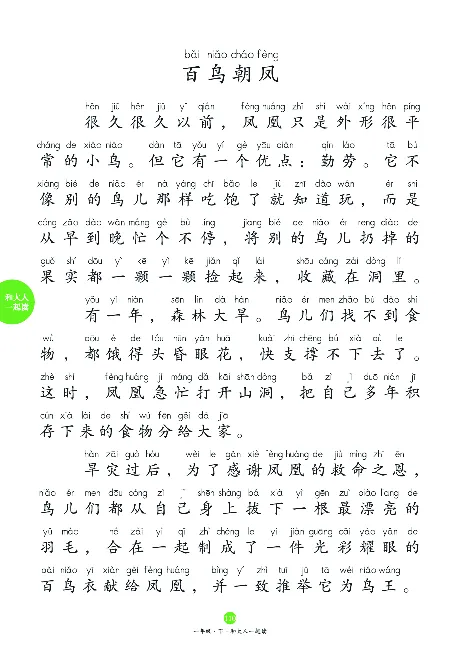 bǎi niǎo cháo fèng
百鸟朝凤
hěn jiǔ hěn jiǔ yǐ qián fèng huáng zhǐ shì wài xíng hěn píng
很久很久以前，凤凰只是外形很平
cháng de xiǎo niǎo dàn tā yǒu yí gè yōu diǎn qín láo tā bú
常的小鸟。但它有一个优点：勤劳。它不
xiàng bié de niǎo ér nà yàng chī bǎo le jiù zhī dào wán ér shì
像别的鸟儿那样吃饱了就知道玩，而是
cóng zǎo dào wǎn máng gè bù tíng jiāng bié de niǎo ér rēng diào de
从早到晚忙个不停，将别的鸟儿扔掉的
guǒ shí dōu yì kē yì kē jiǎn qǐ lái shōu cáng zài dòng lǐ
果实都一颗一颗捡起来，收藏在洞里。
yǒu yì nián sēn lín dà hàn niǎo ér men zhǎo bú dào shí
有一年，森林大旱。鸟儿们找不到食
wù dōu è de tóu hūn yǎn huā kuài zhī chēng bú xià qù le
物，都饿得头昏眼花，快支撑不下去了。
zhè shí fèng huáng jí máng dǎ kāi shān dòng bǎ zì jǐ duō nián jī
这时，凤凰急忙打开山洞，把自己多年积
cún xià lái de shí wù fēn gěi dà jiā
存下来的食物分给大家。
hàn zāi guò hòu wèi le gǎn xiè fèng huáng de jiù mìng zhī ēn
旱灾过后，为了感谢凤凰的救命之恩，
niǎo ér men dōu cóng zì jǐ shēn shàng bá xià yì gēn zuì piào liang de
鸟儿们都从自己身上拔下一根最漂亮的
yǔ máo hé zài yì qǐ zhì chéng le yí jiàn guāng cǎi yào yǎn de
羽毛，合在一起制成了一件光彩耀眼的
bǎi niǎo yī xiàn gěi fèng huáng bìng yí zhì tuī jǔ tā wéi niǎo wáng
百鸟衣献给凤凰，并一致推举它为鸟王。
和大人
一起读
一年级·下·和大人一起读